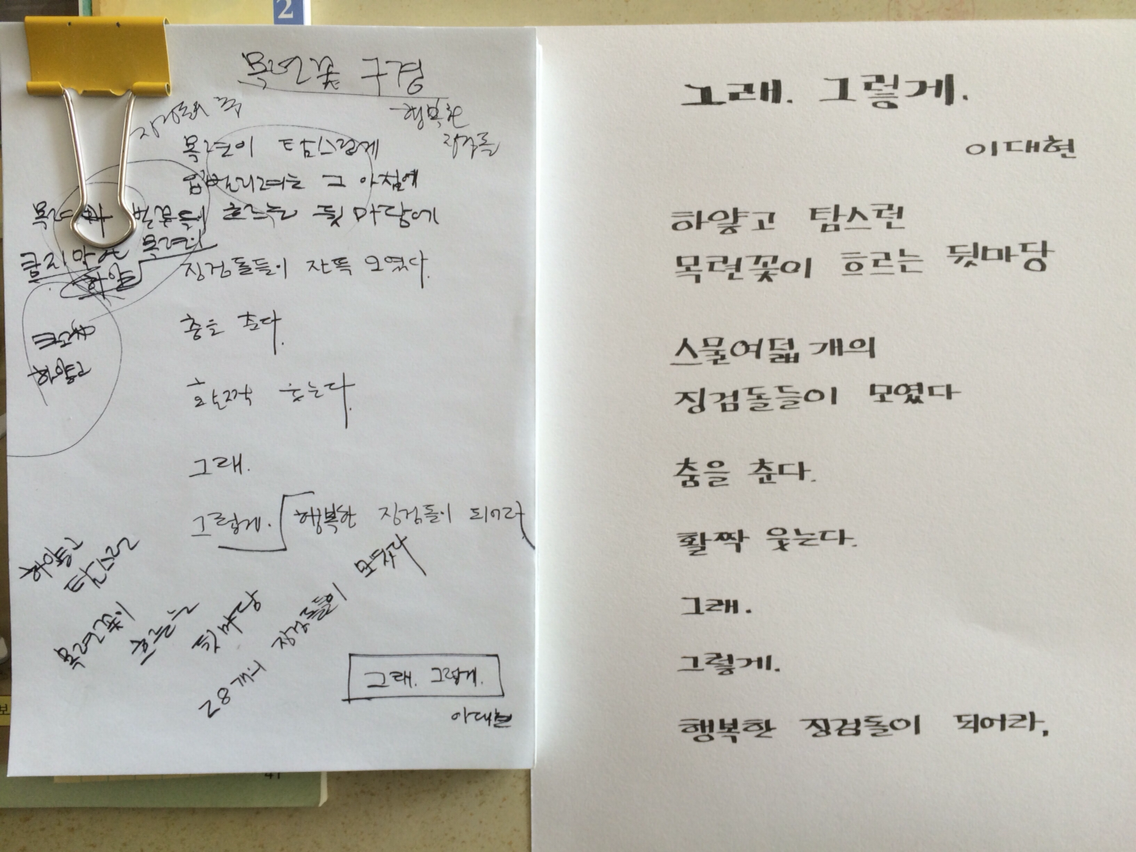 2
목련꽃 구경
행복한
징검돌
목련이 탐스럽게
그 아침에
흐르는 뒷마당에
목련이
징검돌들이 잔뜩 모였다.
춤을 춘다.
활짝 웃는다.
그래.
그렇게. 행복한 징검돌이 되어라
하얗고
탐스런
목련꽃이
흐르는
뒷마당
28개의 징검돌들이 모였다
그래. 그렇게.
이대현
그래. 그렇게.
이대현
하얗고 탐스런
목련꽃이 흐르는 뒷마당
스물여덟 개의
징검돌들이 모였다
춤을 춘다.
활짝 웃는다.
그래.
그렇게.
행복한 징검돌이 되어라,